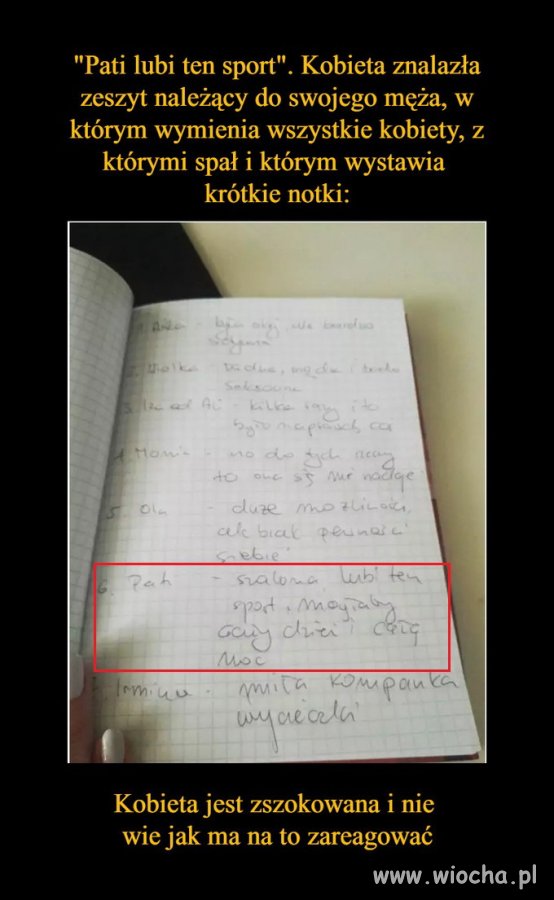 "Pati lubi ten sport". Kobieta znalazła
zeszyt należący do swojego męża, w
którym wymienia wszystkie kobiety, z
którymi spał i którym wystawia
krótkie notki:
- była okej, ale bardzo
- i
3. Iza od Ali - kilka razy i to
było naprawdę coś
4. Monia - no do tych rzeczy
to ona się nie nadaje
5. Ola - duże możliwości,
ale brak pewności
siebie
6. Pati - szalona, lubi ten
sport, mogłaby
cały dzień i całą
noc
7. Irmina - miła kompanka
wycieczki
Kobieta jest zszokowana i nie
wie jak ma na to zareagować
www.wiocha.pl